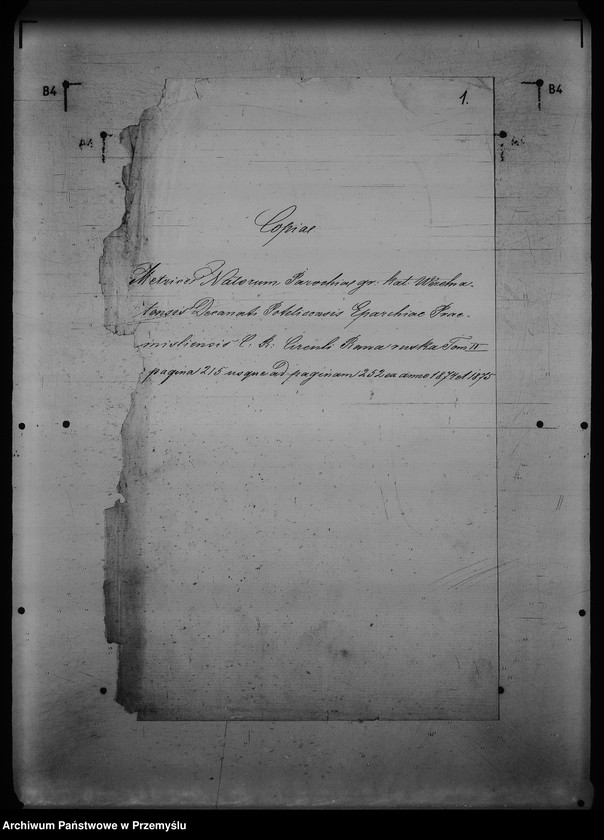 B4
B4
1.
Copiae
Metrices Natorum Parochiae gr. kat. Wierzba-
tensis Decanati Potelicensis Eparchiae Prae-
misliensis C. R. Circuli Rawa ruska Tom IV
pagina 215 usque ad paginam 252 ex anno 1874 et 1875
Archiwum Państwowe w Przemyślu